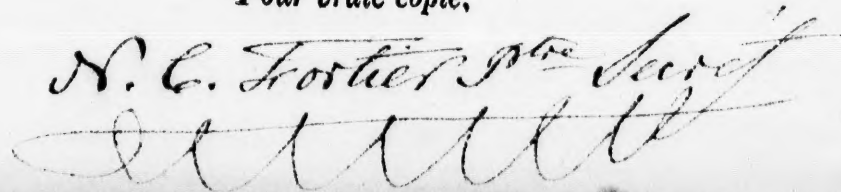 Pour vraie copie,
N. C. Fortier Ptre Secrét